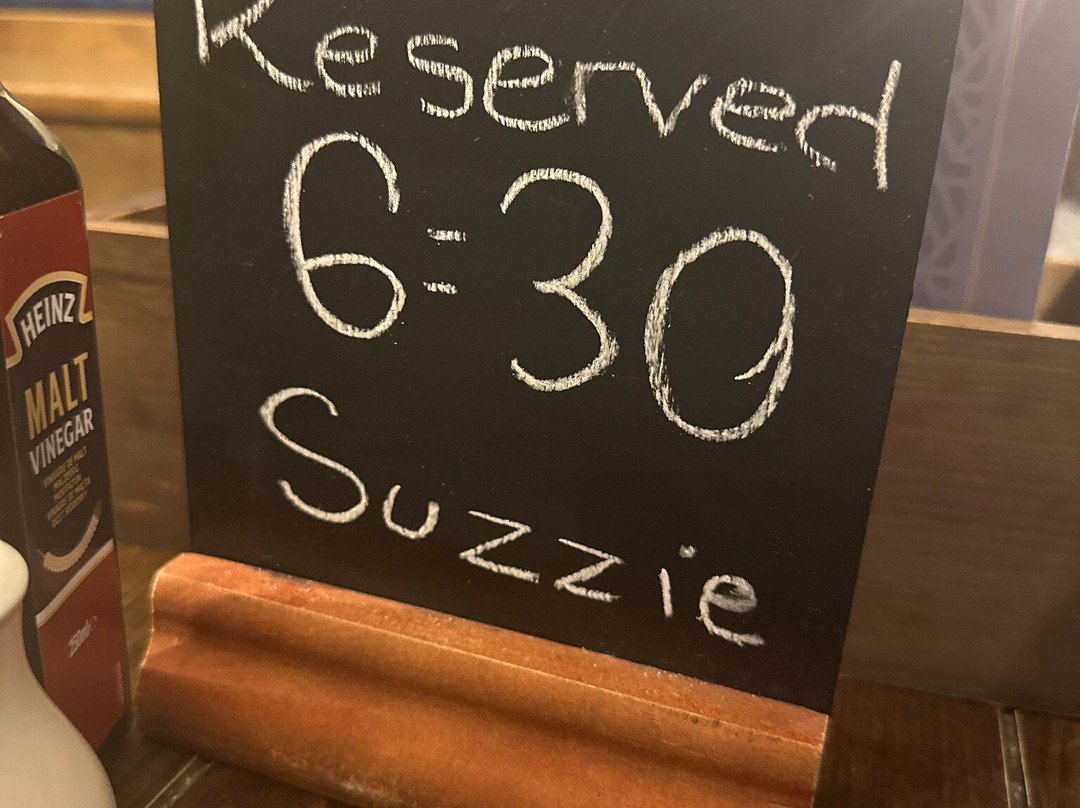 Reserved
6:30
Suzzie
HEINZ
MALT
VINEGAR
250ml℮